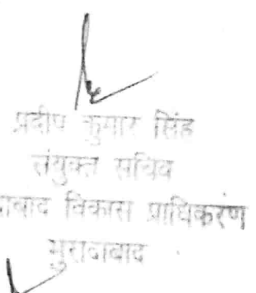 प्रदीप कुमार सिंह
संयुक्त सचिव
ादाबाद विकास प्राधिकरण
मुरादाबाद